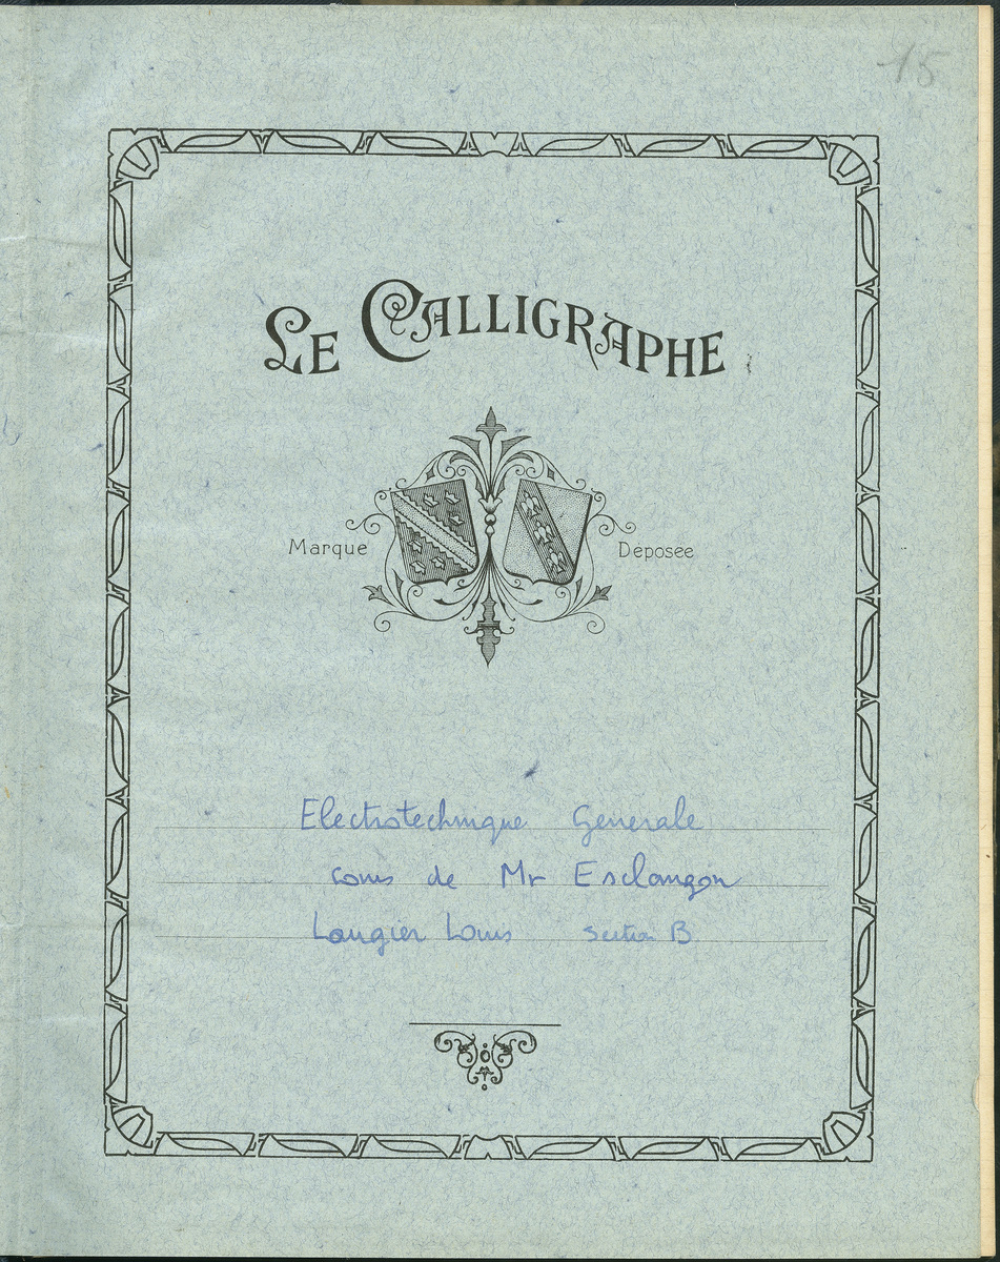 15
LE CALLIGRAPHE
Marque Deposée
Electrotechnique Generale
cours de Mr Esclangon
Laugier Louis section B